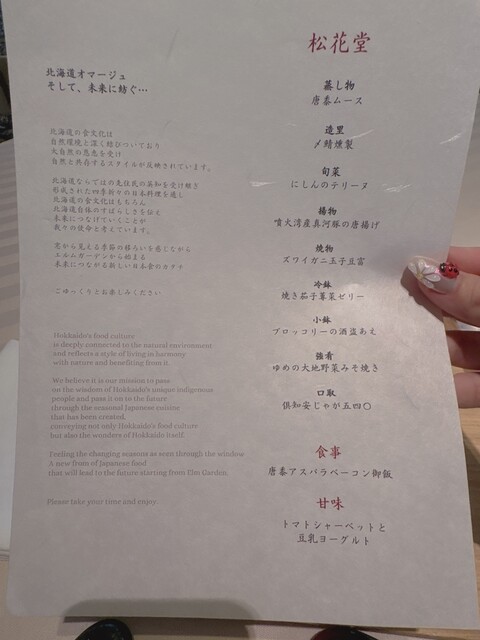 北海道オマージュ
そして、未来に紡ぐ…
北海道の食文化は
自然環境と深く結びついており
大自然の恩恵を受け
自然と共存するスタイルが反映されています。
北海道ならではの先住民の英知を受け継ぎ
形成された四季折々の日本料理を通し
北海道の食文化はもちろん
北海道自体のすばらしさを伝え
未来につなげていくことが
我々の使命と考えています。
窓から見える季節の移ろいを感じながら
エルムガーデンから始まる
未来につながる新しい日本食のカタチ
ごゆっくりとお楽しみください
Hokkaido's food culture
is deeply connected to the natural environment
and reflects a style of living in harmony
with nature and benefiting from it.
We believe it is our mission to pass
on the wisdom of Hokkaido's unique indigenous
people and pass it on to the future
through the seasonal Japanese cuisine
that has been created,
conveying not only Hokkaido's food culture
but also the wonders of Hokkaido itself.
Feeling the changing seasons as seen through the window
A new from of Japanese food
that will lead to the future starting from Elm Garden
Please take your time and enjoy.
松花堂
蒸し物
唐黍ムース
造里
〆鯖燻製
旬菜
にしんのテリーヌ
揚物
噴火湾産真河豚の唐揚げ
焼物
ズワイガニ玉子豆富
冷鉢
焼き茄子蓴菜ゼリー
小鉢
ブロッコリーの酒盗あえ
強肴
ゆめの大地野菜みそ焼き
口取
倶知安じゃが五四〇
食事
唐黍アスパラベーコン御飯
甘味
トマトシャーベットと
豆乳ヨーグルト